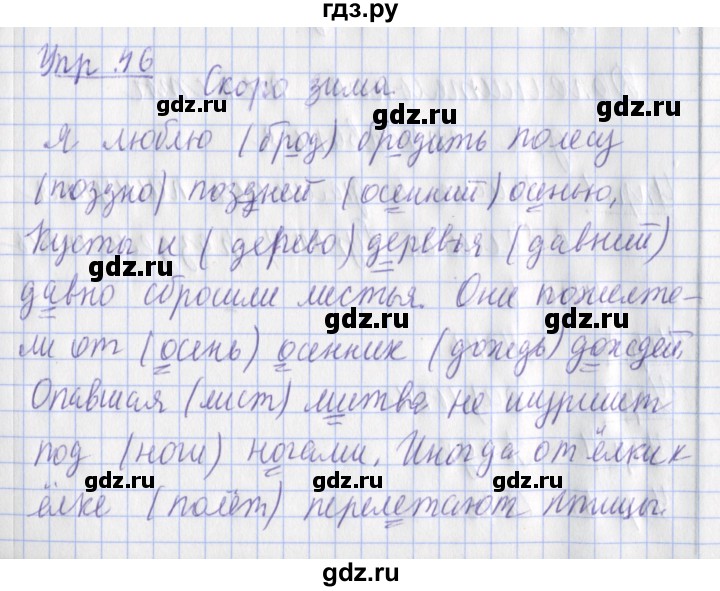 гдз.ру
Упр 46
Скоро зима.
gdz.ru
gdz.ru
Я люблю (брод) бродить по лесу
(поздно) поздней (осенний) осенью.
gdz.ru
gdz.ru
Кусты и (дерево) деревья (давний)
gdz.ru
давно сбросили листья. Они пожелте-
gdz.ru
gdz.ru
ли от (осень) осенних (дождь) дождей.
Опавшая (лист) листва не шуршит
gdz.ru
gdz.ru
под (ноги) ногами. Иногда от ёлки к
gdz.ru
gdz.ru
ёлке (полёт) перелетают птицы.
gdz.ru